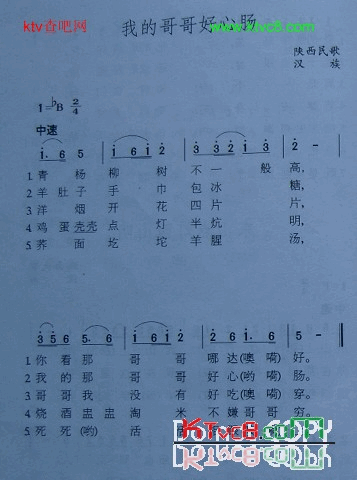 ktv查吧网
www.ktvc8.com
我的哥哥好心肠
陕西民歌
汉 族
1=♭B 2/4
中速
1· 6 5 1 6 1 2 3 3 2 1 2 -
1 青 杨 柳 树 不 一 般 高,
2 羊 肚子 手 巾 包 冰 糖,
3 洋 烟 开 花 四 片 片,
4 鸡 蛋 壳壳 点 灯 半 炕 明,
5 荞 面 圪 坨 羊 腥 汤,
1 你 看 那 哥 哥 哪 达(噢 嗬) 好。
2 我 的 那 哥 哥 好 心(哟 嗬) 肠。
3 哥 哥 我 没 有 好 吃(噢 嗬) 穿。
4 烧 酒 盅 盅 淘 米 不 嫌 哥 哥 穷。
5 死 死 (哟) 活
KTvc8.com
DONT COPY